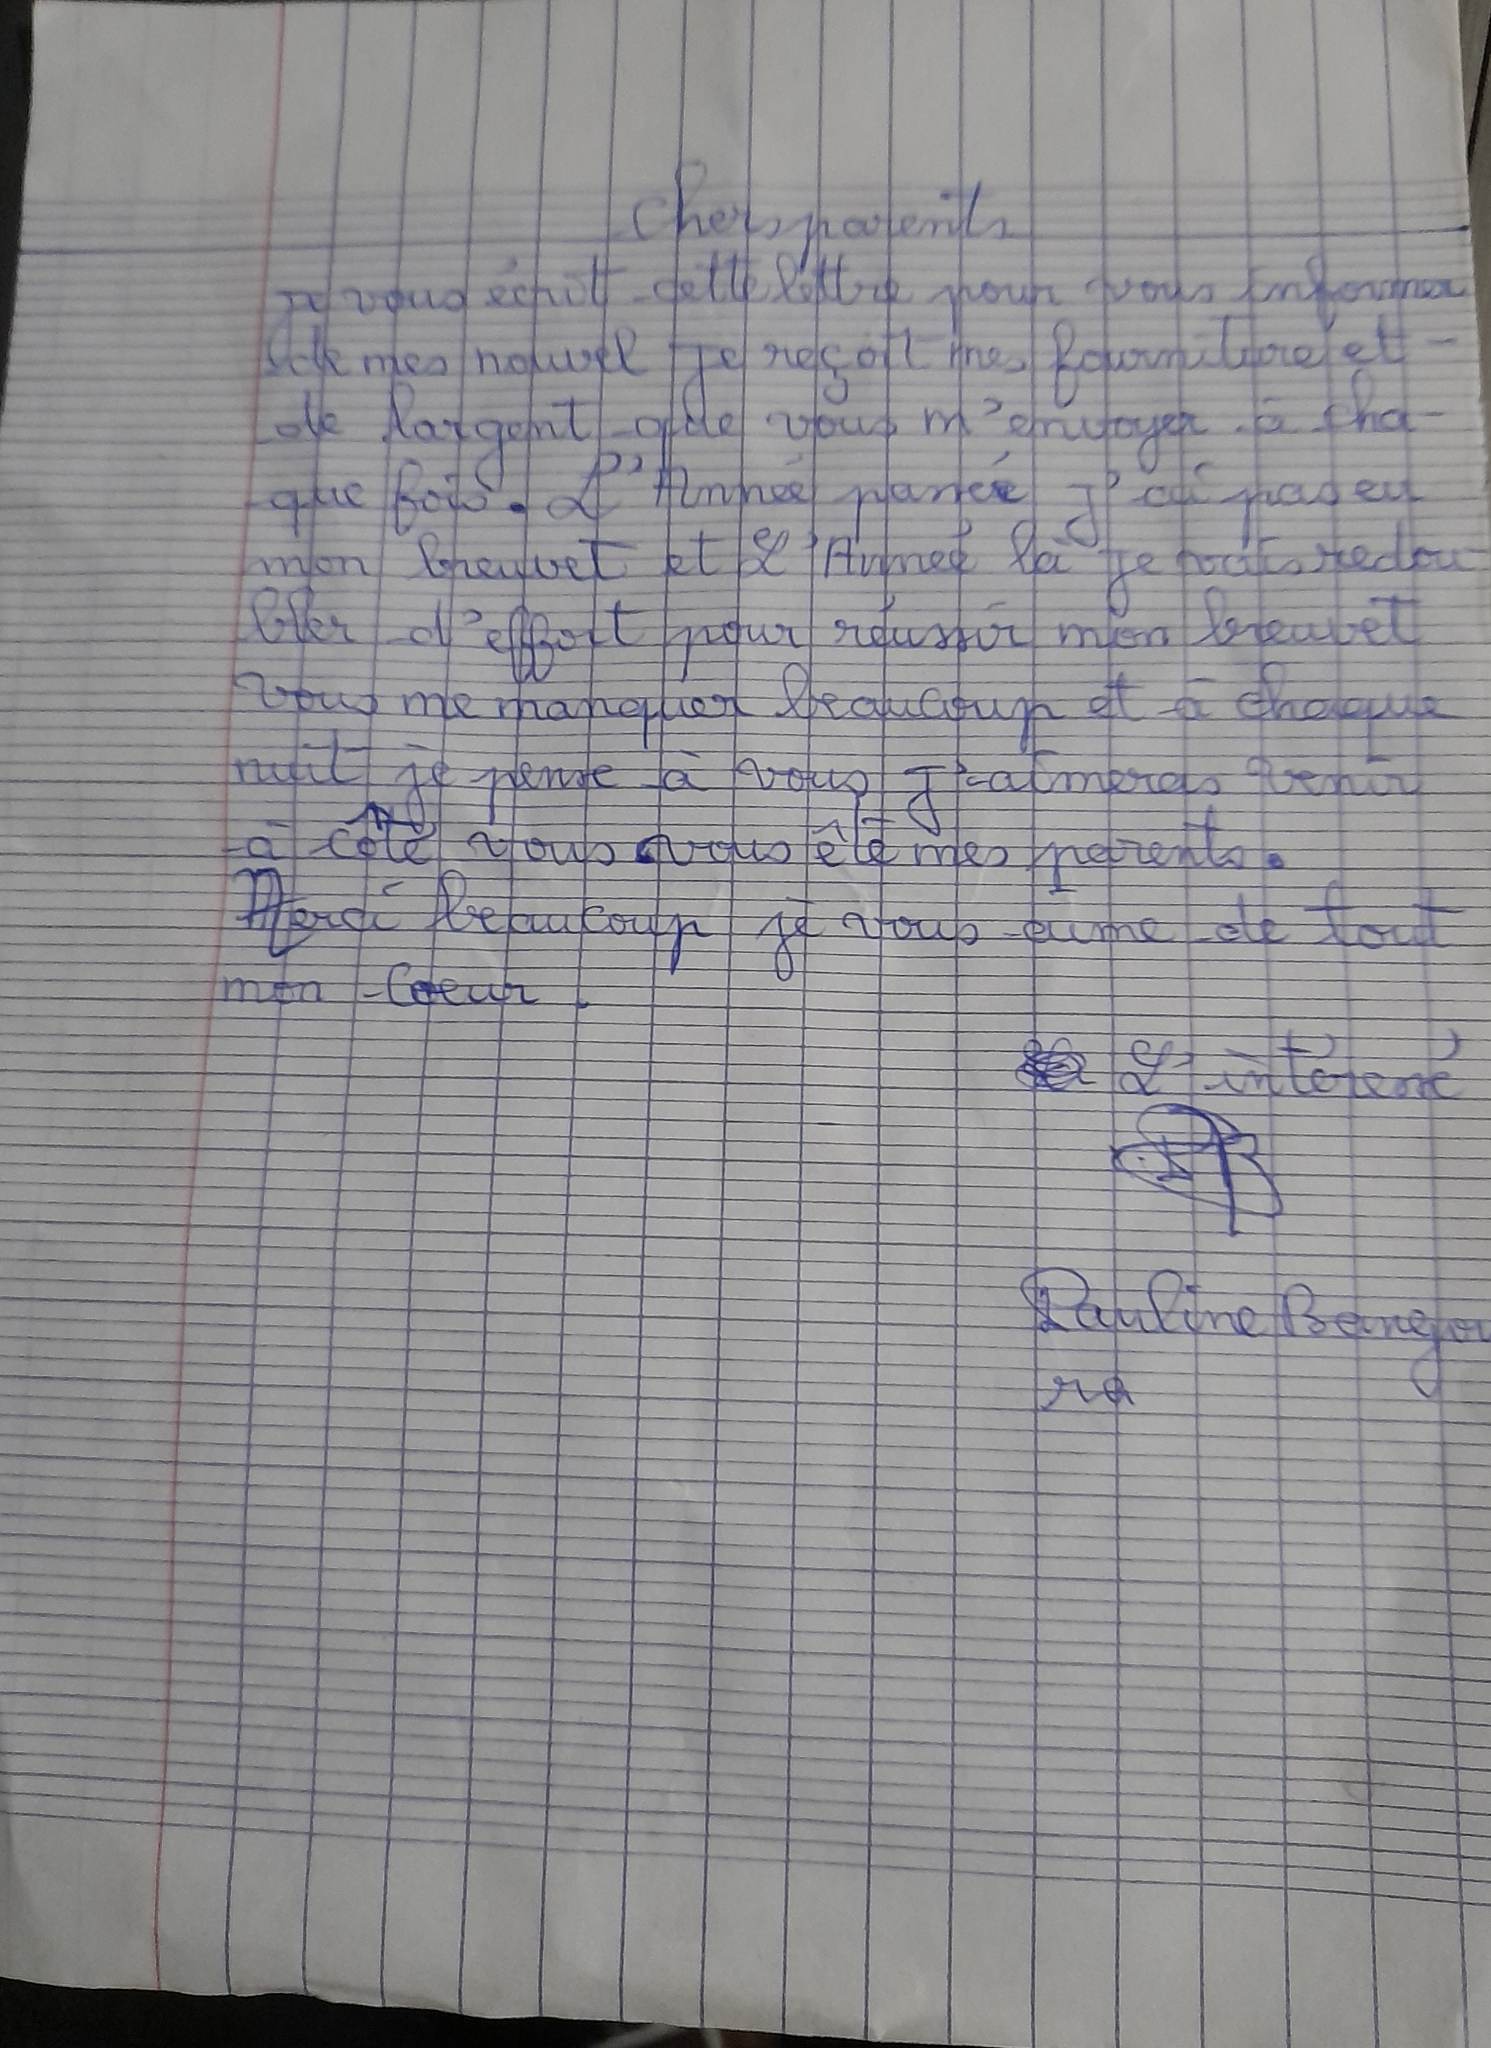 Chers parents
je vous écrit cette lettre pour vous informer
de mes nouvel je reçoit mes fourniture et
de l'argent que vous m'envoyer à cha-
que fois. L'Année passée j'ai pas eu
mon breuvet et L'Année là je vais redou
bler d'effort pour réussir mon breuvet
vous me manquer beaucoup et à chaque
nuit je pense à vous J'aimerais venir
à côté vous vous êtê mes parents.
Merci beaucoup je vous aime de tout
mon coeur.
L'intéressé
Pauline Bangou
ra